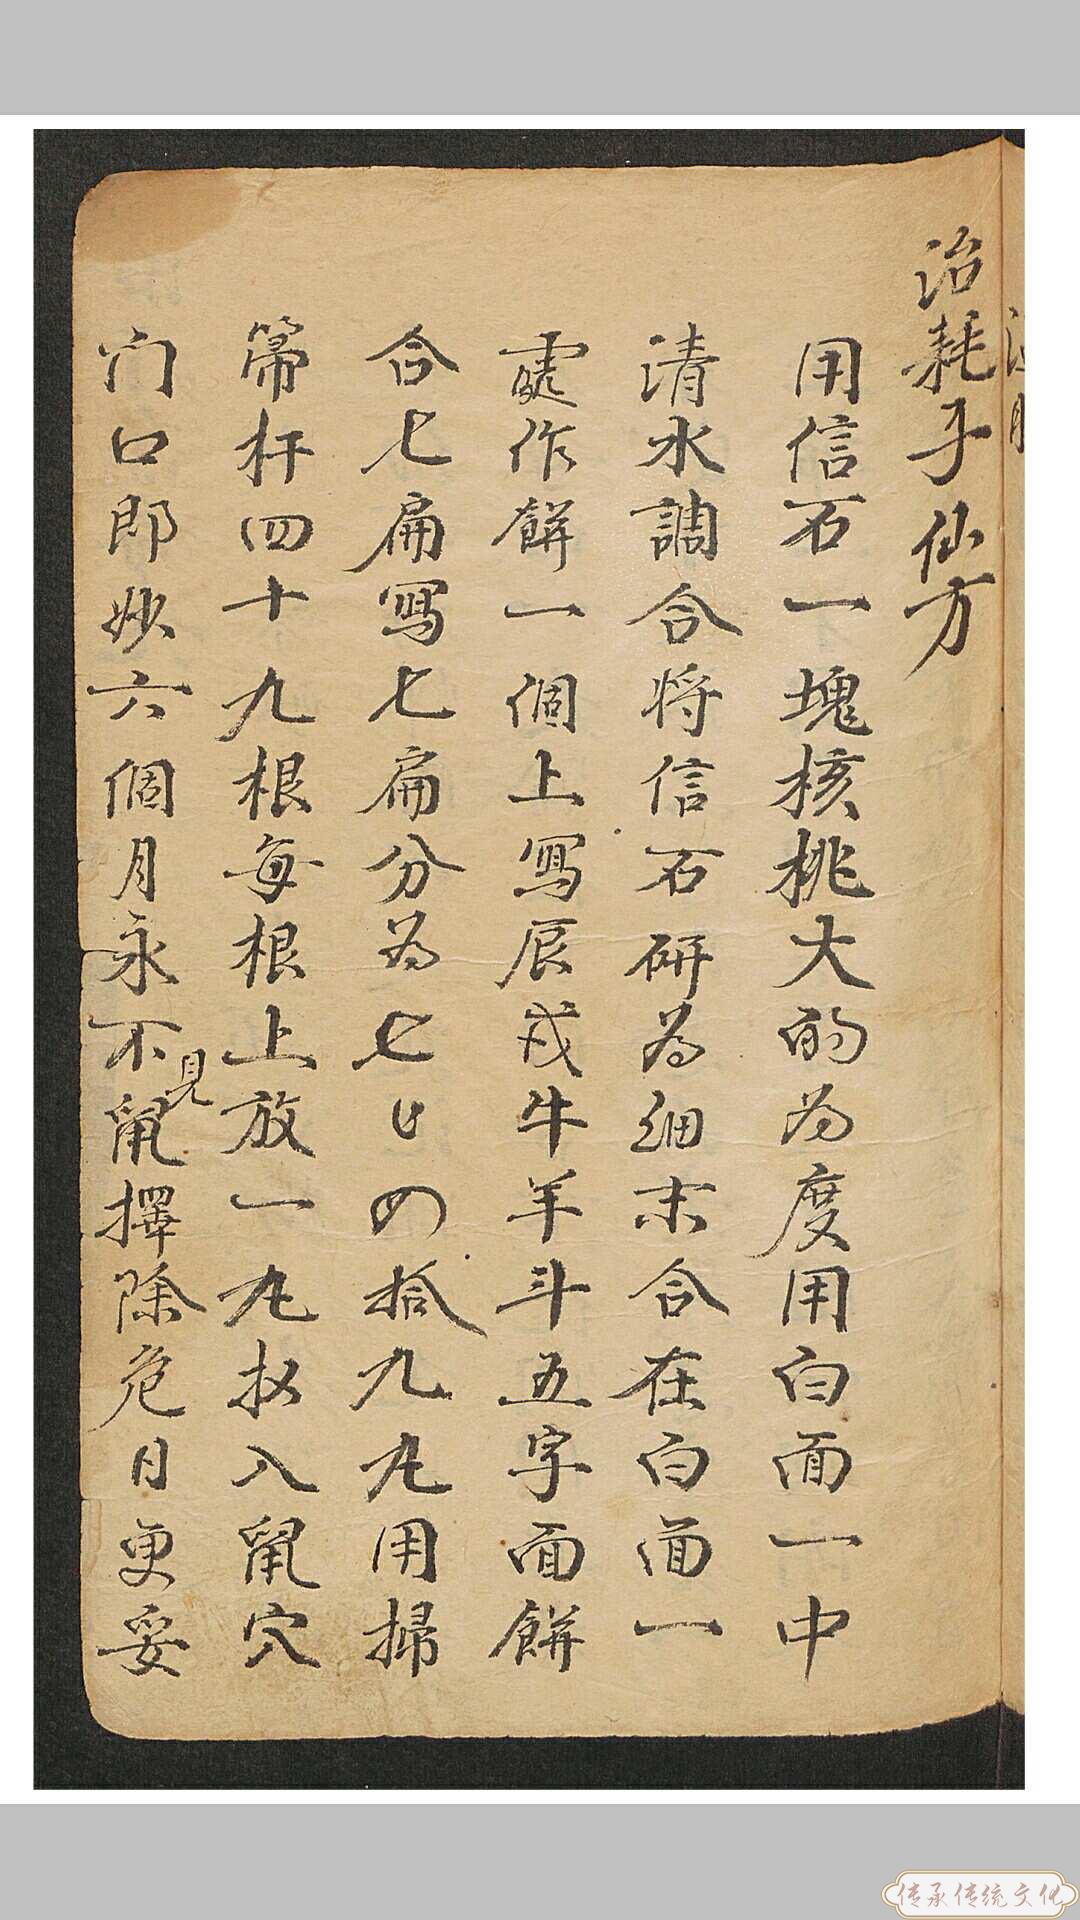 治耗子仙方
用信石一塊核桃大的为度用白面一中
清水調合將信石研为细末合在白面一
處作餅一個上寫辰戌牛羊斗五字面餅
合七扁寫七扁分为七七四拾九丸用掃
箒杆四十九根每根上放一丸扠入鼠穴
门口即妙六個月永不見鼠擇除危日更妥
传承传统文化